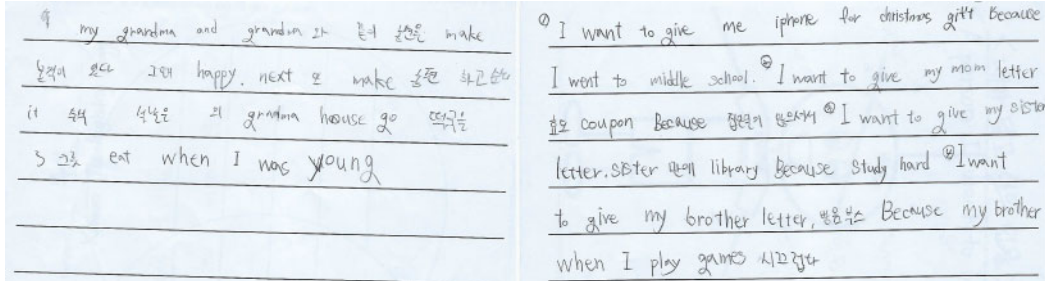 my grandma and grandma 와 같이 송편을 make
본적이 있다 그때 happy. next 또 make 송편 하고싶다
it 추석 설날은 의 grandma hoouse go 떡국을
3 그릇 eat when I was young
① I want to give me iphone for christmas gift Because
I went to middle school. ② I want to give my mom letter
효도 coupon Because 집안일이 많으셔서 ③ I want to give my sister
letter. sister library Because study hard ④ I want
to give my brother letter, 방음부스 Because my brother
when I play games 시끄럽다